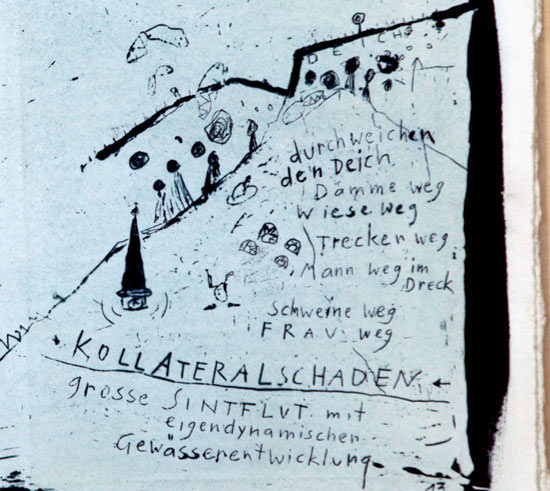 DEICH
durchweichen
den Deich
Dämme weg
Wiese weg
Trecker weg
Mann weg im
Dreck
Schweine weg
FRAU weg
KOLLATERALSCHADEN
grosse SINTFLUT mit
eigendynamischen
Gewässerentwicklung
13